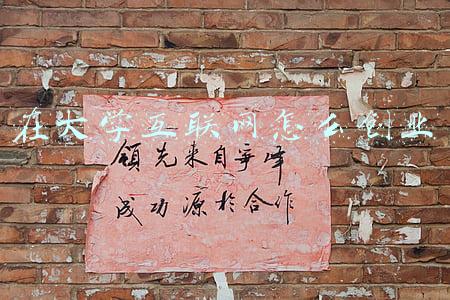 在大学互联网怎么创业
领先来自争峰
成功源於合作